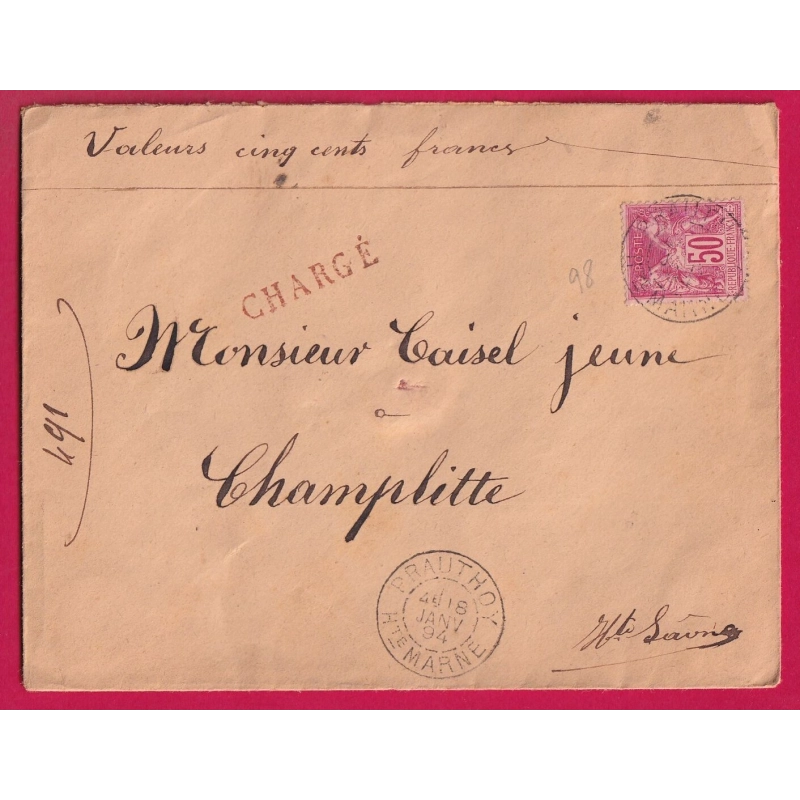 Valeurs cinq cents francs
POSTES
50
REPUBLIQUE FRANC
MARNE
98
CHARGÉ
Monsieur Caisel jeune
à
Champlitte
491
PRAUTHOY
4E 18
JANV
94
HTE MARNE
Hte Saône